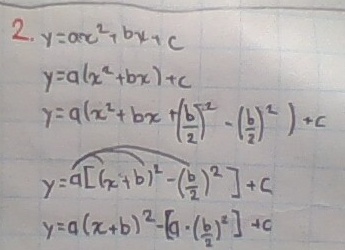 2. y=ax²+bx+c
y=a(x²+bx)+c
y=a(x²+bx+(b/2)²-(b/2)²)+c
y=a[(x+b)²-(b/2)²]+c
y=a(x+b)²-[a·(b/2)²]+c